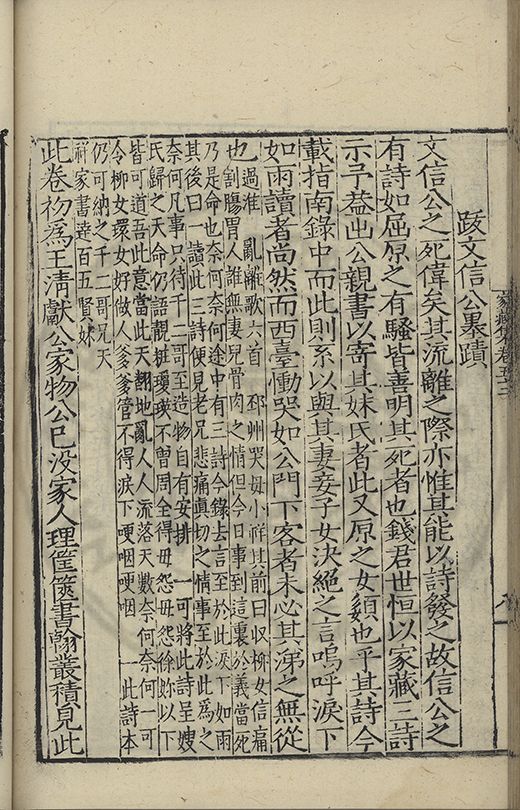 跋文信公墨蹟
文信公之死偉矣其流離之際亦惟其能以詩發之故信公之
有詩如屈原之有騷皆善明其死者也錢君世恒以家藏三詩
示予益出公親書以寄其妹氏者此又原之女嬃也乎其詩今
載指南錄中而此則系以與其妻妾子女決絕之言嗚呼淚下
如雨讀者尚然而西臺慟哭如公門下客者未必其涕之無從
也
過淮 亂離歌六首 邳州哭毋小祥其前曰収柳女信痛
割腸胃人誰無妻兒骨肉之情但今日事到這裏於義當死
乃是命也奈何奈何途中有三詩今錄去言至於此淚下如雨
其後曰一讀此三詩便見老兄悲痛真切之情事至於此為之
奈何凡事只待千二哥至造物自有安排 一可將此詩呈嫂
氏歸之天命仍語靚粧瓊瑛不曾周全得毋怨毋怨徐妳以下
皆可道吾此意當此天翻地亂人人流落天數奈何奈何一可
令柳女環女好做人爹爹管不得淚下哽咽哽咽 一此詩本
仍可納之千二哥兄天
祥家書達百五賢妹
此卷初爲王清獻公家物公已沒家人理筐篋書翰叢積見此